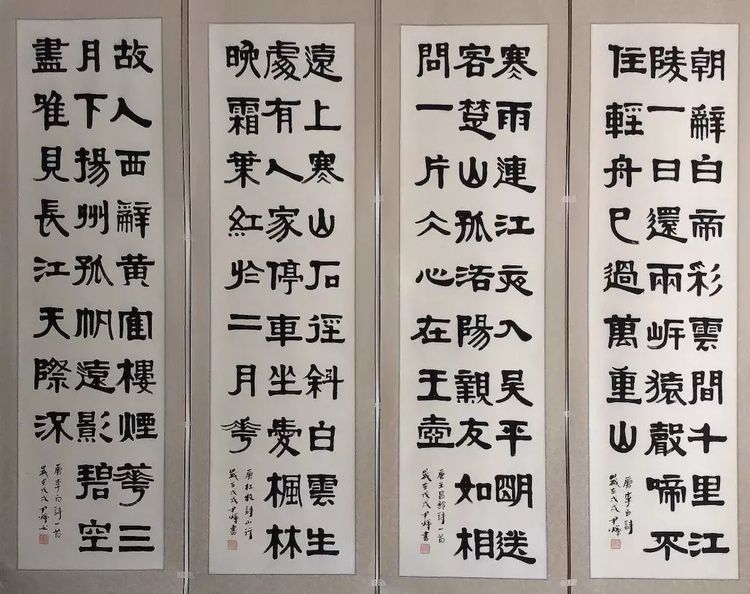 朝辭白帝彩雲間千里江
陵一日還兩岸猿聲啼不
住輕舟已過萬重山
唐李白詩
歲在戊戌尹輝
寒雨連江夜入吴平明送
客楚山孤洛陽親友如相
問一片仌心在玉壺
唐王昌齡詩一首
歲在戊戌尹輝書
遠上寒山石徑斜白雲生
處有人家停車坐愛楓林
晚霜葉紅於二月華
唐杜牧詩山行
歲在戊戌尹輝書
故人西辭黃鶴樓煙華三
月下揚州孤帆遠影碧空
盡唯見長江天際流
唐李白詩一首
歲在戊戌尹輝